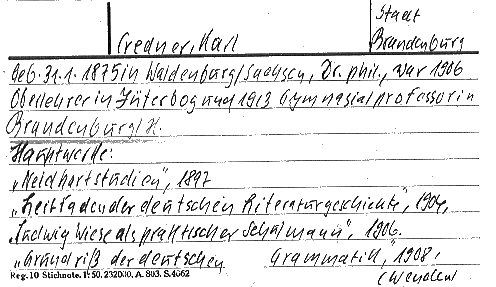 Stadt
Credner, Karl
Brandenburg
Geb. 31.1.1875 in Waldenburg/Sachsen, Dr. phil., war 1906
Oberlehrer in Jüterbog und 1913 Gymnasialprofessor in
Brandenburg/H.
Hauptwerke:
„Neidhartstudien", 1897
„Leitfaden der deutschen Literaturgeschichte", 1904,
„Ludwig Wiese als praktischer Schulmann", 1906.
„Grundriß der deutschen Grammatik", 1908,
Reg. 10 Stichnote. I. 50. 232000, A. 803. S. 4062
(Wenden